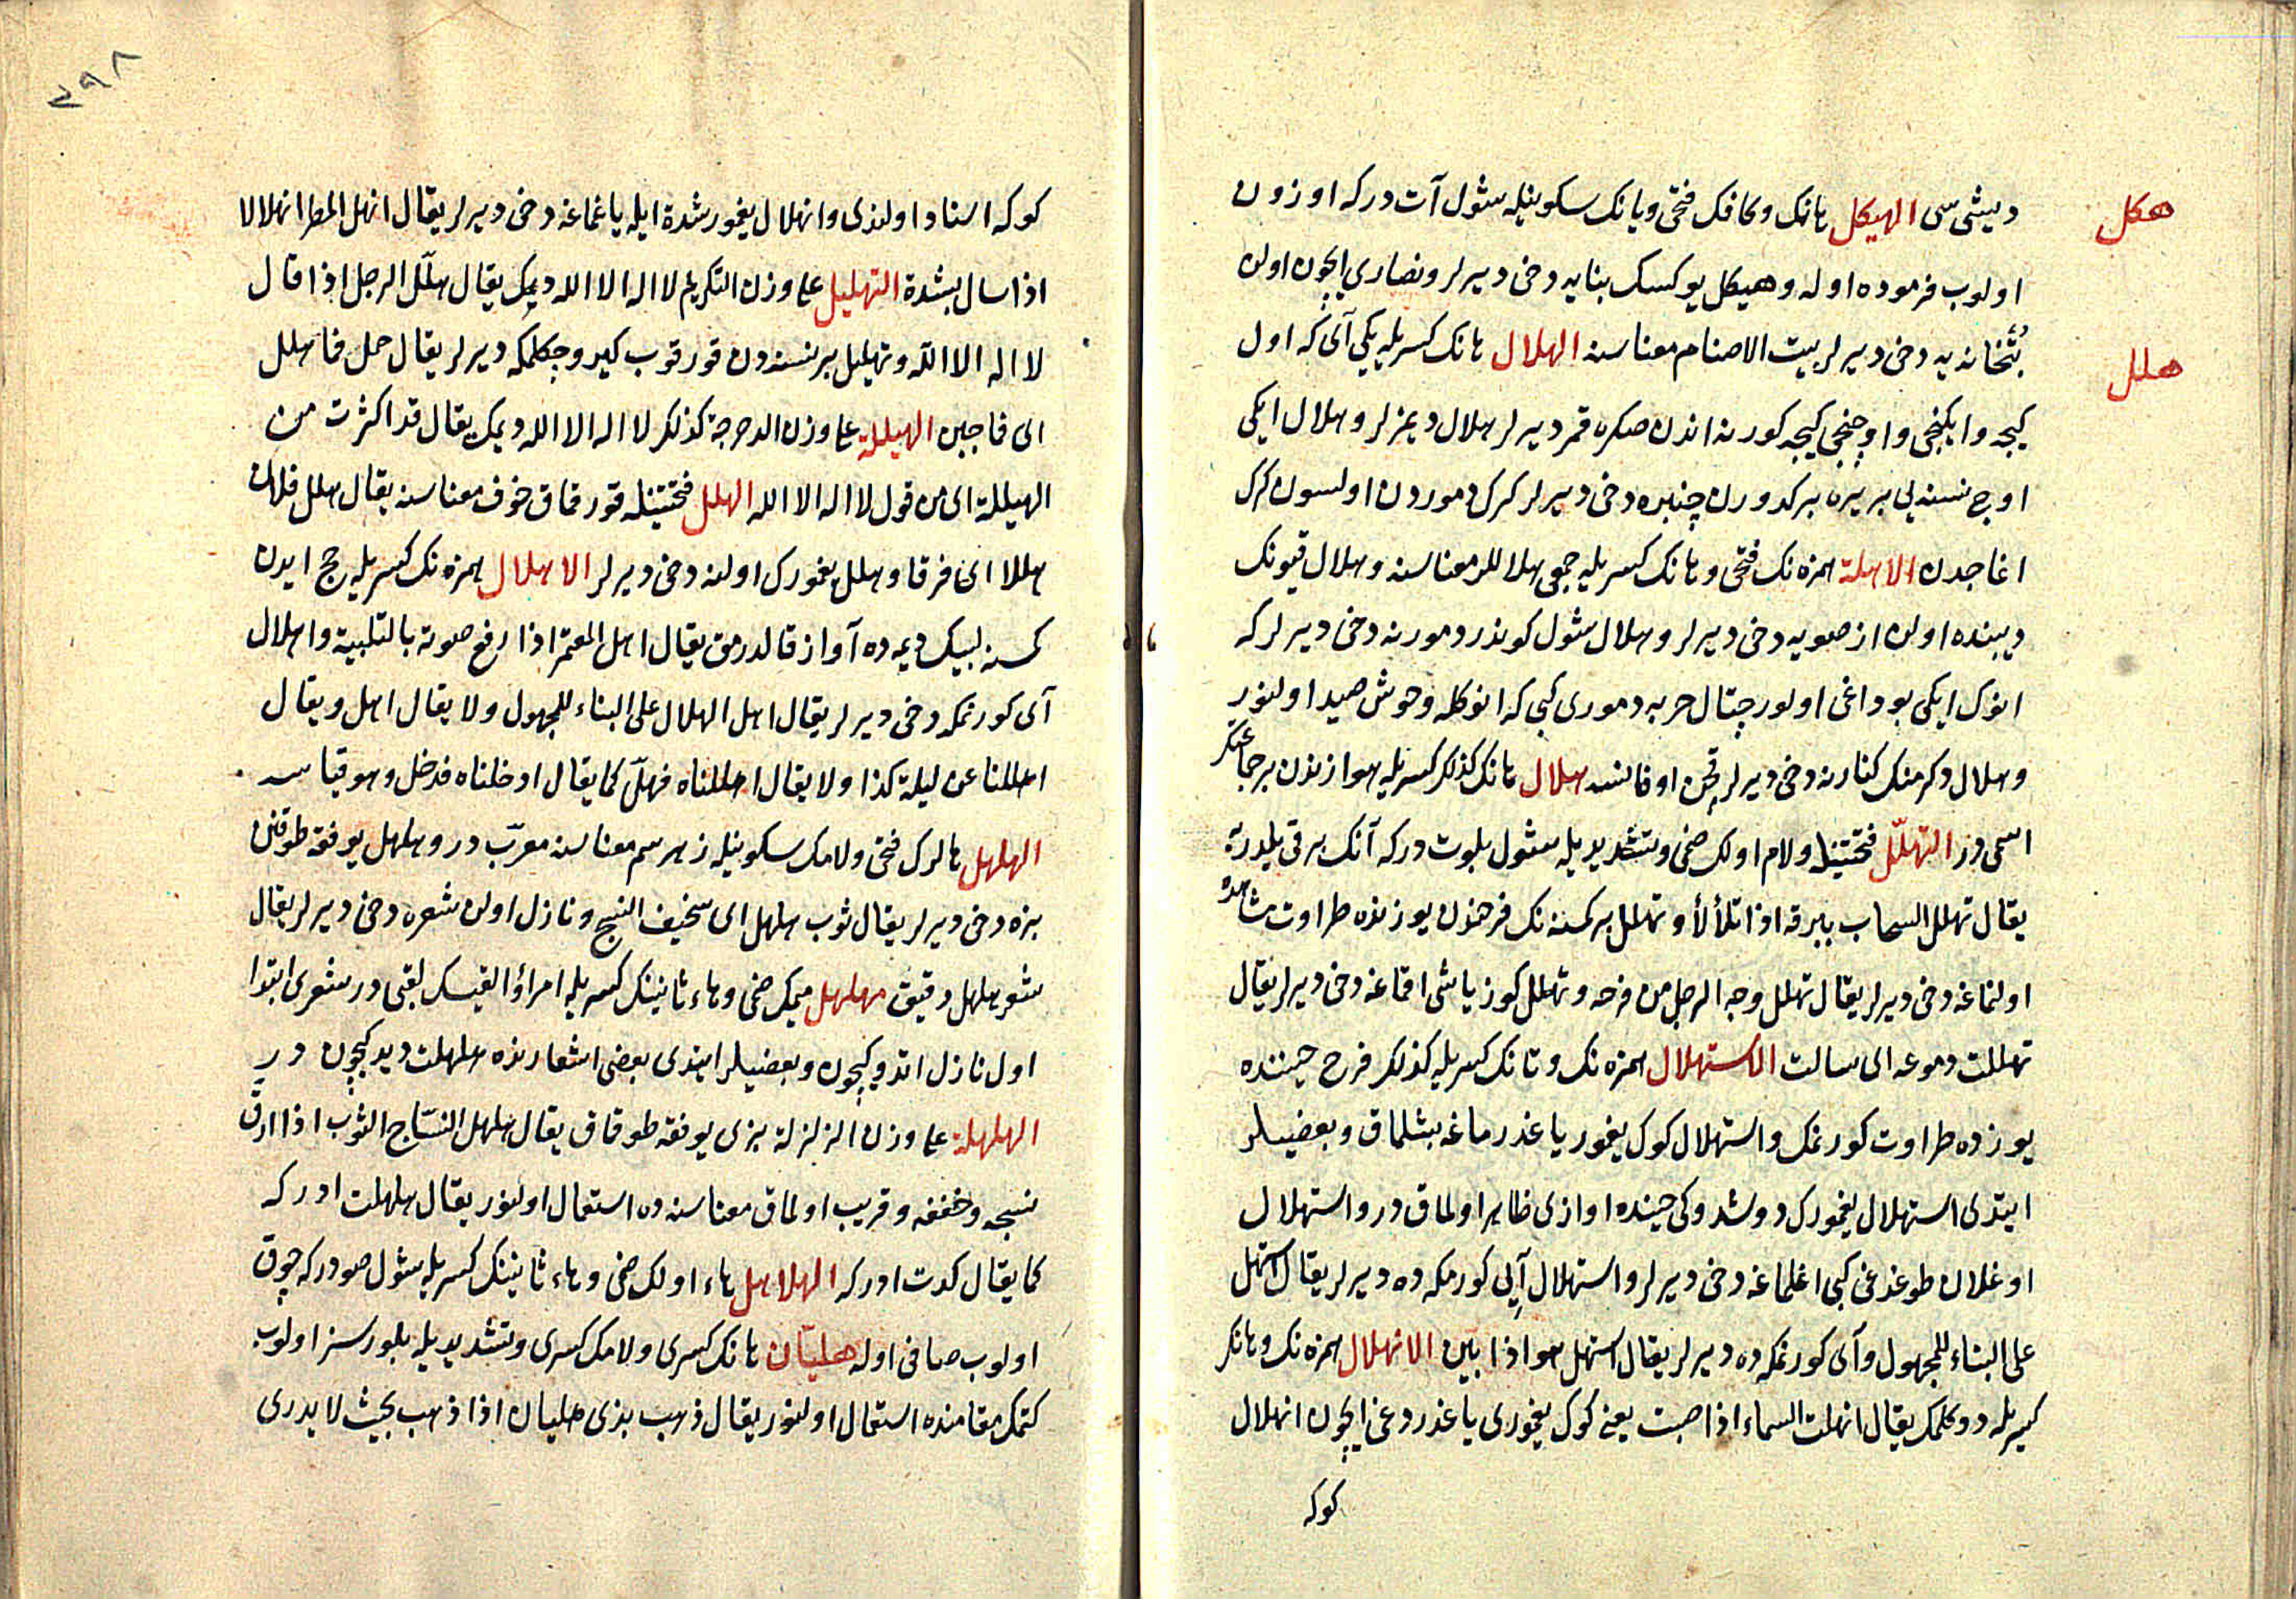 هكل
ديشى سى الهيكل هانك وكافك فتحى ويانك سكونيله شول آت دركه اوزون
اولوب فرموده اوله وهيكل يوكسك بنايه دخى ديرلر ونصارى ايچون اولن
بتخانه يه دخى ديرلر بيت الاصنام معناسنه الهلال هانك كسريله يكى آى كه اول
هلل
كيجه وايكنجى واوچنجى كيجه كورنه اندن صكره قمر ديرلر هلال ديمزلر وهلال ايكى
اوچ نسنه يى بر يره بركدورن چنبره دخى ديرلر كرك دموردن اولسون كرك
اغاجدن الاهلة همزه نك فتحى وهانك كسريله جمعى هلاللر معناسنه وهلال قيونك
ديبنده اولن از صويه دخى ديرلر وهلال شول كوندر دمورنه دخى ديرلر كه
انوك ايكى بوداغى اولور چتال حربه دمورى كبى كه انوكله وحوش صيد اولنور
وهلال دكرمنك كنارنه دخى ديرلر قچن اوفانسه هلال هانك كذلك كسريله هوازندن بر جماعتك
اسمى در التهلّل فتحتينله ولام اولك ضمى وتشديديله شول بلوت دركه آنك برقى يلدريه
يقال تهلل السحاب ببرقه اذا تلألأ وتهلل بر كسنه نك فرحندن يوزنده طراوت مشاهده
اولنماغه دخى ديرلر يقال تهلل وجه الرجل من فرحه وتهلل كوز ياشى اقماغه دخى ديرلر يقال
تهللت دموعه اى سالت الاستهلال همزه نك وتانك كسريله كذلك فرح حيننده
يوزده طراوت كورنمك واستهلال كوك يغمور ياغدرماغه بشلماق وبعضيلر
ايتدى استهلال يغمورك دوشدوكى حينده اوازى ظاهر اولماق در واستهلال
اوغلان طوغدغى كبى اغلماغه دخى ديرلر واستهلال آيى كورمكه ده ديرلر يقال استهل
على البناء للمجهول وآى كورنمكه ده ديرلر يقال استهل هو اذا تبين الانهلال همزه نك وهانك
كسريله دوكلمك يقال انهلت السماء اذا صبت يعنى كوك يغمورى ياغدردغى ايچون انهلال
كوكه
٢٩٨
كوكه اسناد اولندى وانهلال يغمور شدة ايله ياغماغه دخى ديرلر يقال انهل المطر انهلالا
اذا سال بشدة التهليل على وزن التكريم لا اله الا الله ديمك يقال هلّل الرجل اذا قال
لا اله الا الله وتهليل بر نسنه دن قورقوب كيرو چكلمكه ديرلر يقال حمل فما هلل
اى فما جبن الهيللة على وزن الدحرجة كذلك لا اله الا الله ديمك يقال قد اكثرت من
الهيللة اى من قول لا اله الا الله الهلل فتحتينله قورقماق خوف معناسنه يقال هلل فلان
هللا اى فرقا وهلل يغمورك اولنه دخى ديرلر الاهلال همزه نك كسريله حج ايدن
كمسنه لبيك ديمه ده آواز قالدرمق يقال اهل المعتمر اذا رفع صوته بالتلبية واهلال
آى كورنمكه دخى ديرلر يقال اهل الهلال على البناء للمجهول ولا يقال اهل ويقال
اهللنا عن ليلة كذا ولا يقال اهللناه فهلّ كما يقال ادخلناه فدخل وهو قياسه
الهلهل هالرك فتحى ولامك سكونيله زهر سم معناسنه معرّب در وهلهل يوفقه طوقنن
بزه دخى ديرلر يقال ثوب هلهل اى سخيف النسج ونازل اولن شعره دخى ديرلر يقال
شعر هلهل رقيق مهلهل ميمك ضمى وهاء ثانينك كسريله امرؤ القيسك لقبى در شعرى ابتدا
اول نازل اتدوكيچون وبعضيلر ايتدى بعض اشعارنده هلهلت ديدكيچون در
الهلهلة على وزن الزلزلة بزى يوفقه طوقماق يقال هلهل النساج الثوب اذا ارق
نسجه وخففه وقريب اولماق معناسنه ده استعمال اولنور يقال هلهلت ادركه
كما يقال كدت ادركه الهلاهل هاء اولك ضمى وهاء ثانينك كسريله شول صودركه چوق
اولوب صافى اوله هليّان هانك كسرى ولامك كسرى وتشديديله بلورسز اولوب
كتمك مقامنده استعمال اولنور يقال ذهب بذى هليان اذا ذهب بحيث لا يدرى